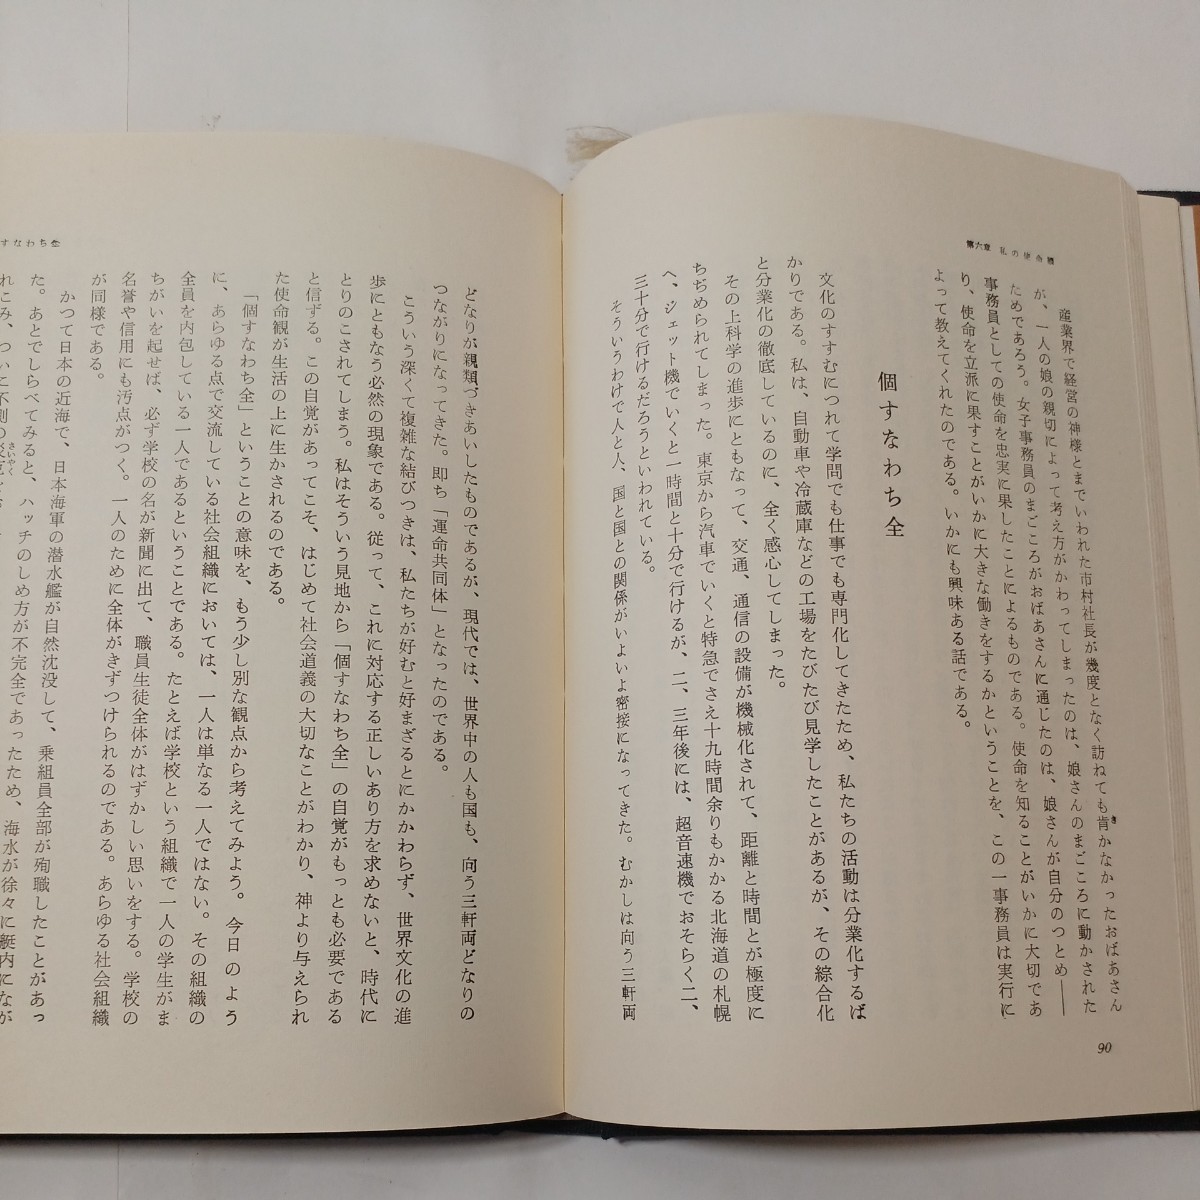 第六章　私の使命観
産業界で経営の神様とまでいわれた市村社長が幾度となく訪ねても肯かなかったおばあさん
き
が、一人の娘の親切によって考え方がかわってしまったのは、娘さんのまごころに動かされた
ためであろう。女子事務員のまごころがおばあさんに通じたのは、娘さんが自分のつとめ――
事務員としての使命を忠実に果したことによるものである。使命を知ることがいかに大切であ
り、使命を立派に果すことがいかに大きな働きをするかということを、この一事務員は実行に
よって教えてくれたのである。いかにも興味ある話である。
個すなわち全
文化のすすむにつれて学問でも仕事でも専門化してきたため、私たちの活動は分業化するば
かりである。私は、自動車や冷蔵庫などの工場をたびたび見学したことがあるが、その綜合化
と分業化の徹底しているのに、全く感心してしまった。
その上科学の進歩にともなって、交通、通信の設備が機械化されて、距離と時間とが極度に
ちぢめられてしまった。東京から汽車でいくと特急でさえ十九時間余りもかかる北海道の札幌
へ、ジェット機でいくと一時間と十分で行けるが、二、三年後には、超音速機でおそらく二、
三十分で行けるだろうといわれている。
そういうわけで人と人、国と国との関係がいよいよ密接になってきた。むかしは向う三軒両
90
どなりが親類づきあいしたものであるが、現代では、世界中の人も国も、向う三軒両どなりの
つながりになってきた。即ち「運命共同体」となったのである。
こういう深くて複雑な結びつきは、私たちが好むと好まざるとにかかわらず、世界文化の進
歩にともなう必然の現象である。従って、これに対応する正しいあり方を求めないと、時代に
とりのこされてしまう。私はそういう見地から「個すなわち全」の自覚がもっとも必要である
と信ずる。この自覚があってこそ、はじめて社会道義の大切なことがわかり、神より与えられ
た使命観が生活の上に生かされるのである。
「個すなわち全」ということの意味を、もう少し別な観点から考えてみよう。今日のよう
に、あらゆる点で交流している社会組織においては、一人は単なる一人ではない。その組織の
全員を内包している一人であるということである。たとえば学校という組織で一人の学生がま
ちがいを起せば、必ず学校の名が新聞に出て、職員生徒全体がはずかしい思いをする。学校の
名誉や信用にも汚点がつく。一人のために全体がきずつけられるのである。あらゆる社会組織
が同様である。
かつて日本の近海で、日本海軍の潜水艦が自然沈没して、乗組員全部が殉職したことがあっ
た。あとでしらべてみると、ハッチのしめ方が不完全であったため、海水が徐々に艇内になが
れこみ、ついに不測の
さいやく
すなわち全